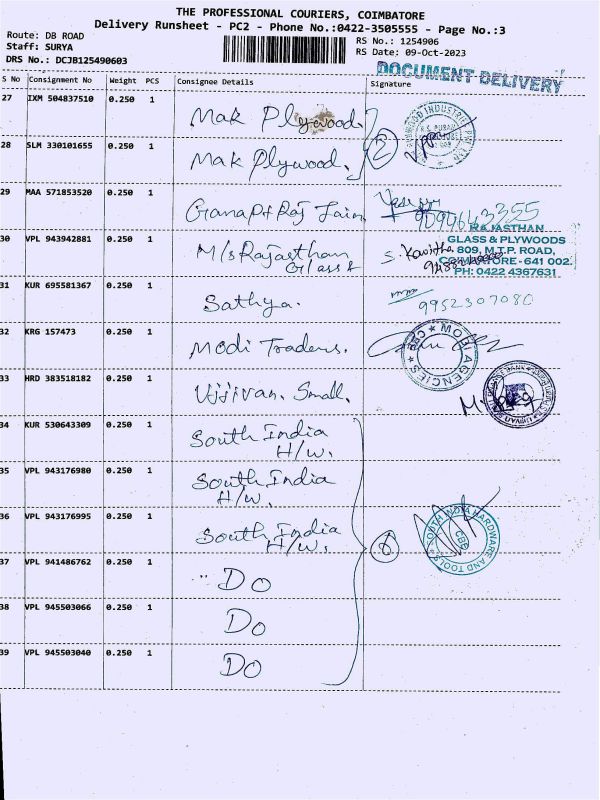 THE PROFESSIONAL COURIERS, COIMBATORE
Delivery Runsheet - PC2 - Phone No.:0422-3505555 - Page No.:3
Route: DB ROAD
Staff: SURYA
DRS No.: DCJB125490603
RS No.: 1254906
RS Date: 09-Oct-2023
DOCUMENT DELIVERY
S No Consignment No Weight PCS Consignee Details Signature
27 IXM 504837510 0.250 1 Mak Plywood.
28 SLM 330101655 0.250 1 Mak Plywood. 2
29 MAA 571853520 0.250 1 Ganapt Raj Jain
30 VPL 943942881 0.250 1 M/s Rajasthan
Glass &
S. Kavitha
RAJASTHAN
GLASS & PLYWOODS
809, M.T.P. ROAD,
COIMBATORE - 641 002.
PH: 0422 4367631
31 KUR 695581367 0.250 1 Sathya. 9952307080
32 KRG 157473 0.250 1 Modi Traders. MODI AGENCIES CBE
33 HRD 383518182 0.250 1 Ujjivan. Small.
34 KUR 530643309 0.250 1 South India
H/w.
35 VPL 943176980 0.250 1 South India
H/w.
36 VPL 943176995 0.250 1 South India
H/w.
6
SOUTH INDIA HARDWARE AND TOOLS CBE
37 VPL 941486762 0.250 1 Do
38 VPL 945503066 0.250 1 Do
39 VPL 945503040 0.250 1 Do